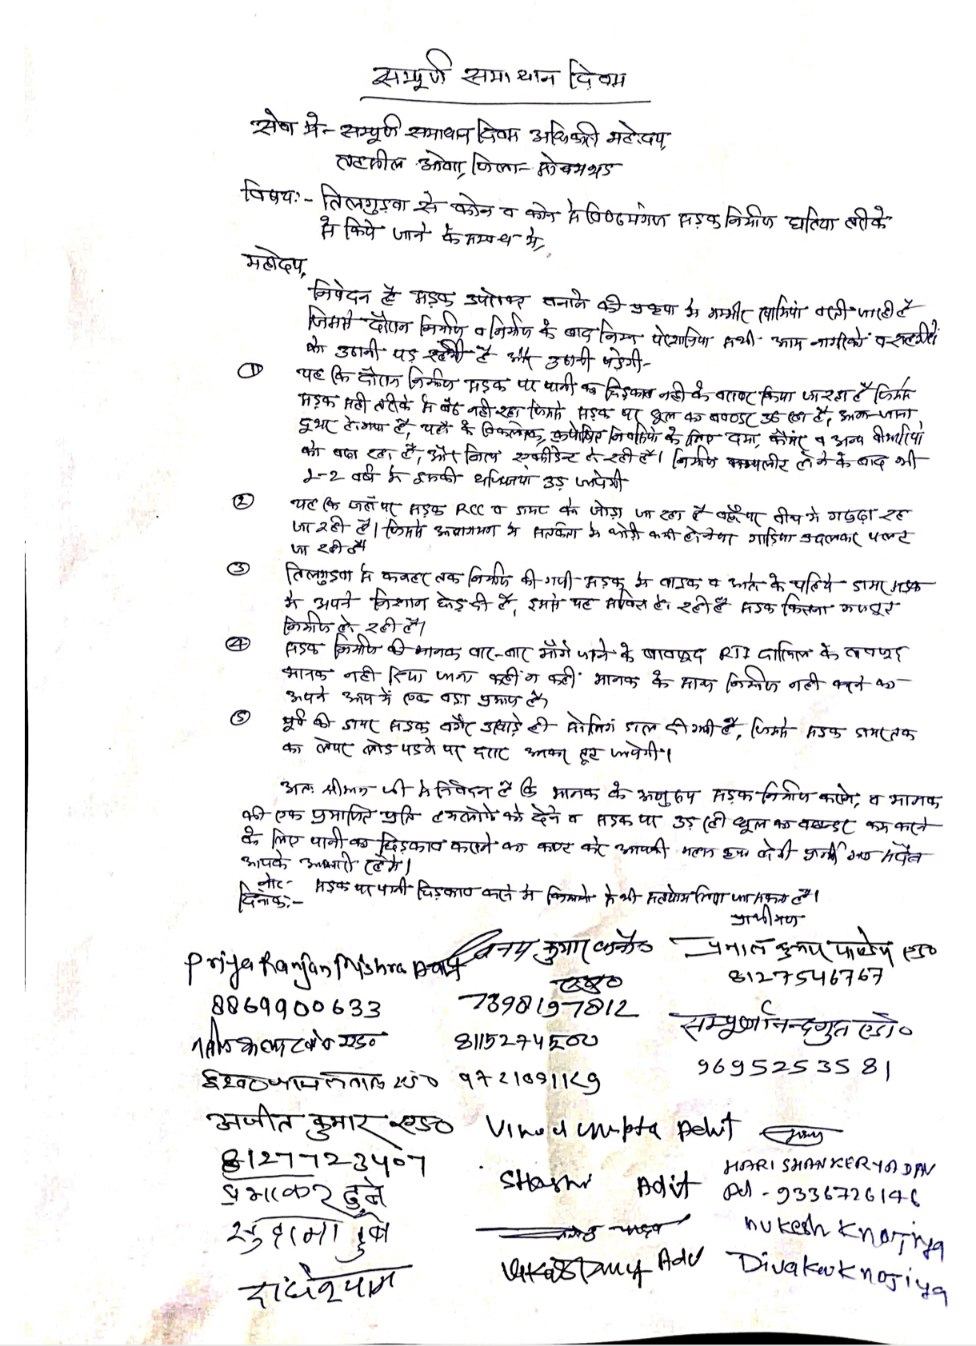 सम्पूर्ण समाधान दिवस
सेवा में - सम्पूर्ण समाधान दिवस अधिकारी महोदय,
तहसील ओबरा, जिला - सोनभद्र
विषय:- तिलगुडवा से कोन व कोन से सड़क निर्माण घटिया तरीके
से किये जाने के सम्बन्ध में,
महोदय,
निवेदन है सड़क उपरोक्त बनाने की गम्भीर खामियां बरती जा रही है
जिससे दौरान निर्माण व निर्माण के बाद निम्न परेशानियां सभी आम नागरिकों व
को उठानी पड़ रही है और उठानी पड़ेगी -
① यह कि दौरान निर्माण सड़क पर पानी का छिड़काव नही के बराबर किया जा रहा है जिससे
सड़क सही तरीके से बैठ नही रहा जिससे सड़क पर धूल का बवण्डर उड़ रहा है, आना-जाना
दुभर हो गया है, यहाँ के के लिए दमा, कैंसर व अन्य बीमारियां
को बढ़ा रहा है, और नित्य एक्सीडेन्ट हो रही है। निर्माण कम्पलीट होने के बाद भी
1-2 वर्ष में इसकी धज्जियां उड़ जायेगी
② यह कि जहाँ पर सड़क RCC व डामर के जोड़ा जा रहा है वहाँ पर बीच में गड्ढा रह
जा रही है। जिससे आवागमन में सतर्कता में थोड़ी कमी होने पर गाड़िया उछलकर पलट
जा रही है।
③ तिलगुडवा से तक निर्माण की गयी सड़क में बाइक व के पहिये डामर सड़क
में अपने निशान छोड़ दी है, इससे यह साबित हो रही है सड़क कितना मजबूत
निर्माण हो रही है।
④ सड़क निर्माण की मानक बार-बार माँगे जाने के बावजूद RTI दाखिल के बावजूद
मानक नही दिया जाना कहीं न कहीं मानक के साथ निर्माण नही करने का
अपने आप में एक बड़ा प्रमाण है।
⑤ पूर्व की डामर सड़क बगैर उखाड़े ही डाल दी गयी है, जिससे सड़क डामर तक
का लेयर लोड पड़ने पर दरार आकर टूट जायेगी।
अतः श्रीमान जी से निवेदन है कि मानक के अनुरूप सड़क निर्माण कराने, व मानक
की एक प्रमाणित प्रति हमलोगो को देने व सड़क पर उड़ रही धूल का बवण्डर कम करने
के लिए पानी का छिड़काव कराने का कष्ट करे आपकी महान कृपा होगी सदैव
आपके आभारी रहेगें।
नोट - सड़क पर पानी छिड़काव करने में किसानो से भी सहयोग लिया जा सकता है।
दिनांक:-
प्रार्थीगण
Priya Ranjan Mishra Adv
8869900633
कुमार एड०
7398197812
कुमार पाण्डेय एड०
8127546767
8115274500
सम्पूर्णानन्द गुप्त एडो०
9695253581
एड० 9721091129
अजीत कुमार एड०
8127723407
Vinod Gupta Advt
Shashi Advt
HARI SHANKER YADAV
Ad - 9336726146
प्रभाकर दुबे
सुदामा दुबे
राधेश्याम
Adv
Mukesh Knojiya
Divaker Knojiya